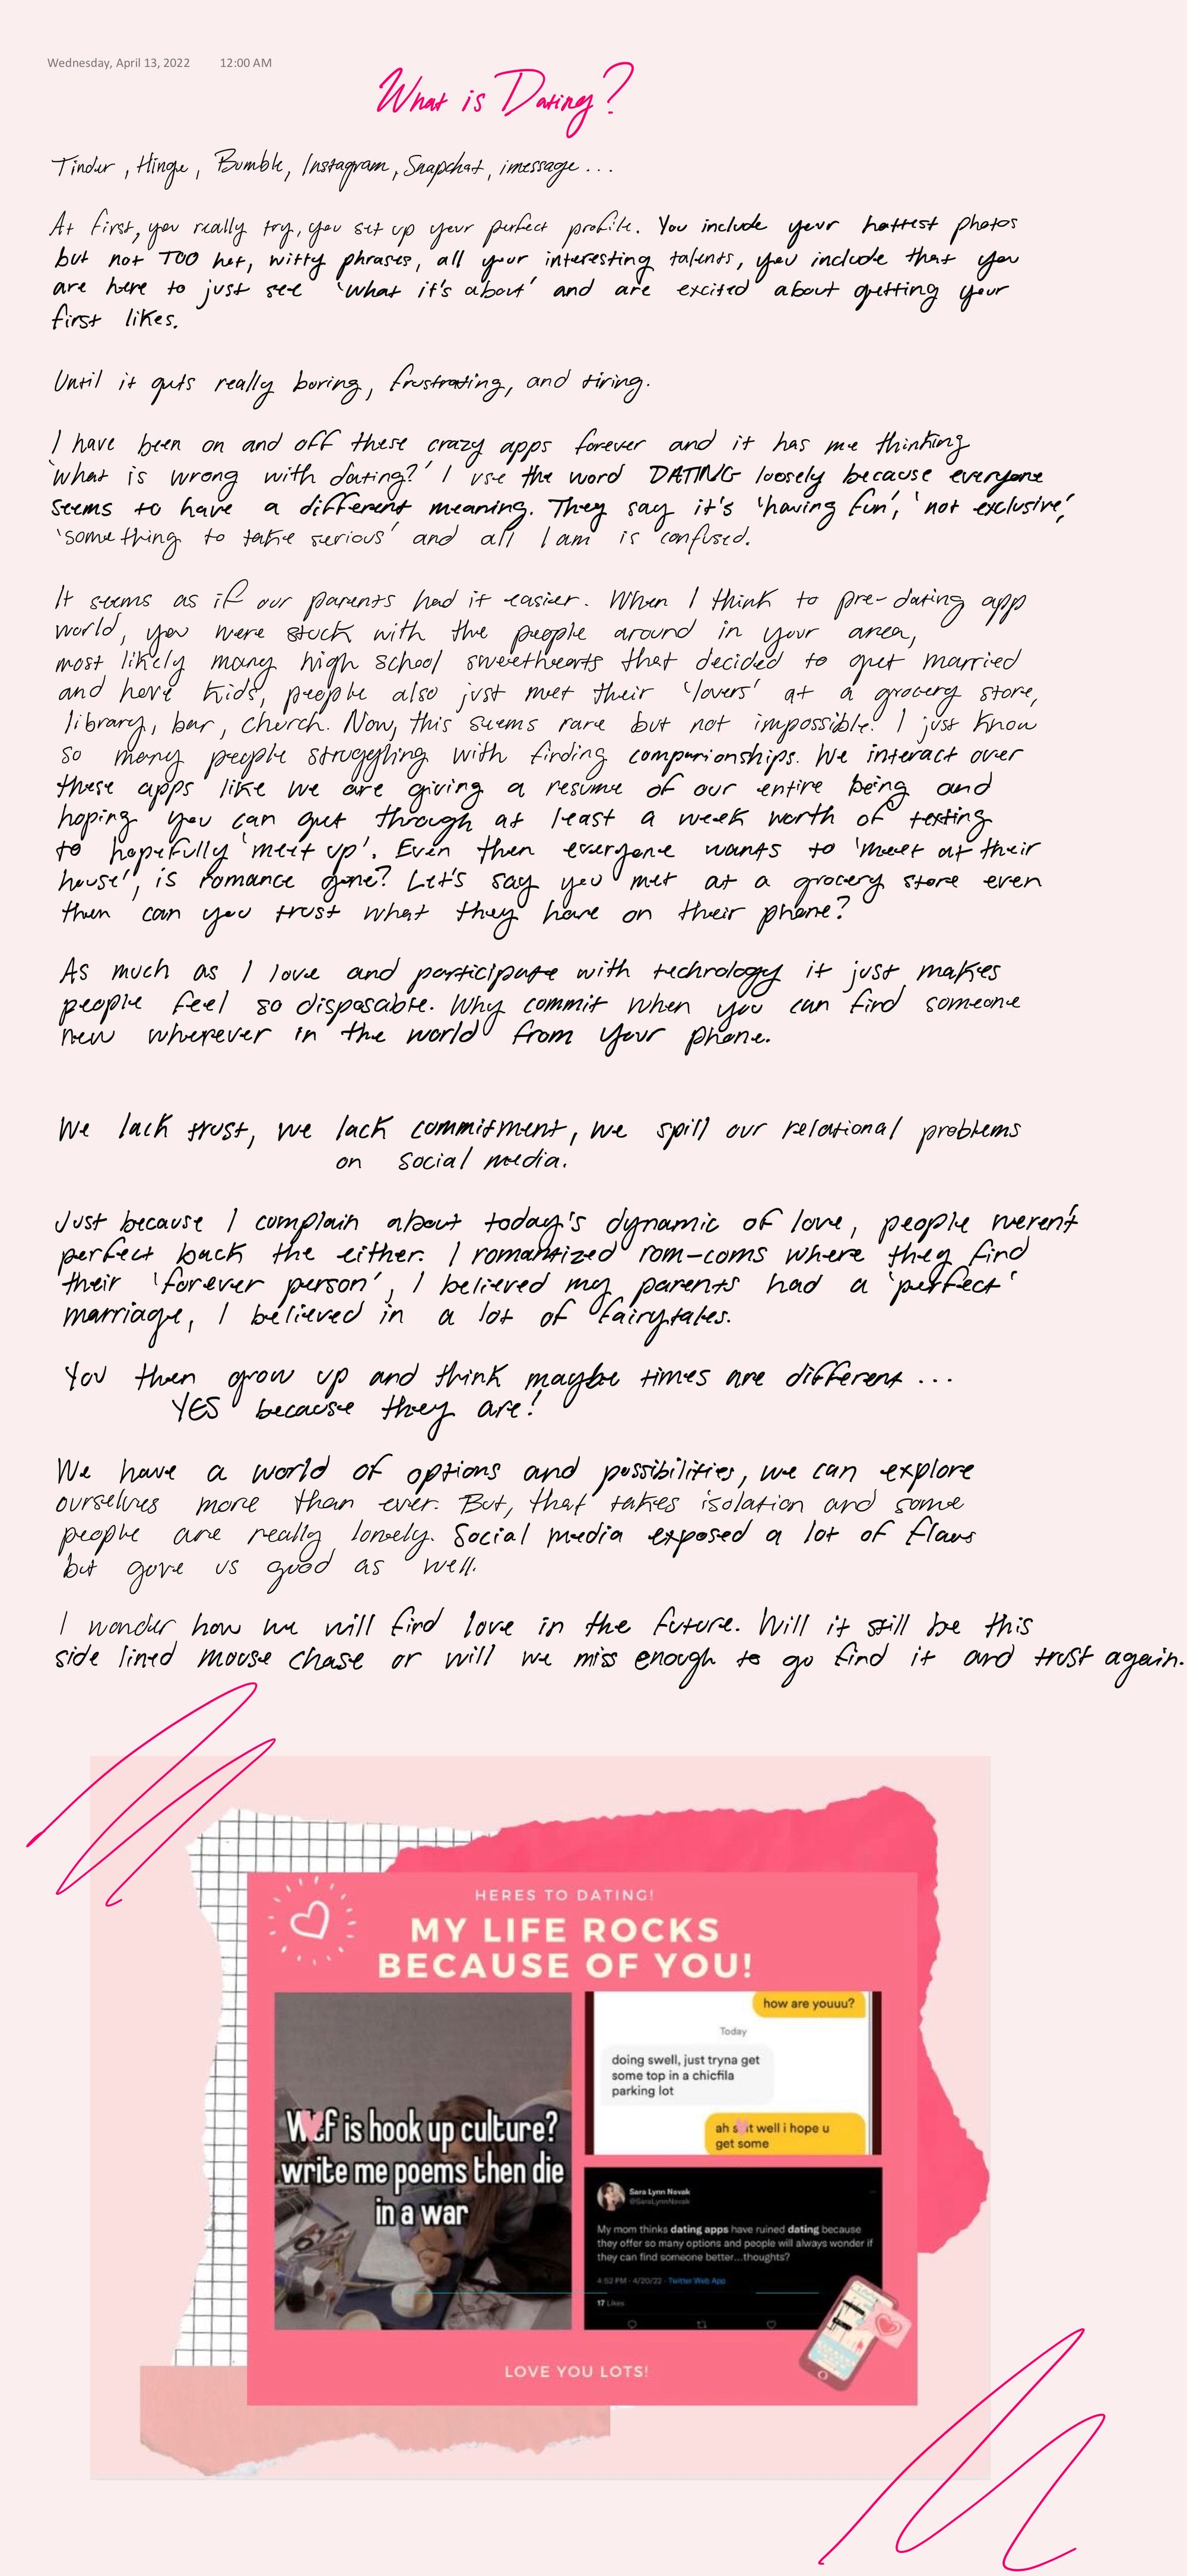 Wednesday, April 13, 2022 12:00 AM
What is Dating?
Tinder, Hinge, Bumble, Instagram, Snapchat, imessage...
At first, you really try, you set up your perfect profile. You include your hottest photos
but not TOO hot, witty phrases, all your interesting talents, you include that you
are here to just see 'what it's about' and are excited about getting your
first likes.
Until it gets really boring, frustrating, and tiring.
I have been on and off these crazy apps forever and it has me thinking
'what is wrong with dating?' I use the word DATING loosely because everyone
seems to have a different meaning. They say it's 'having fun', 'not exclusive',
'something to take serious' and all I am is confused.
It seems as if our parents had it easier. When I think to pre-dating app
world, you were stuck with the people around in your area,
most likely many high school sweethearts that decided to get married
and have kids, people also just met their 'lovers' at a grocery store,
library, bar, church. Now, this seems rare but not impossible. I just know
so many people struggling with finding companionships. We interact over
these apps like we are giving a resume of our entire being and
hoping you can get through at least a week worth of texting
to hopefully 'meet up'. Even then everyone wants to 'meet at their
house', is romance gone? Let's say you met at a grocery store even
then can you trust what they have on their phone?
As much as I love and participate with technology it just makes
people feel so disposable. Why commit when you can find someone
new wherever in the world from your phone.
We lack trust, we lack commitment, we spill our relational problems
on social media.
Just because I complain about today's dynamic of love, people weren't
perfect back the either. I romantized rom-coms where they find
their 'forever person', I believed my parents had a 'perfect'
marriage, I believed in a lot of fairytales.
You then grow up and think maybe times are different...
YES because they are!
We have a world of options and possibilities, we can explore
ourselves more than ever. But, that takes isolation and some
people are really lonely. Social media exposed a lot of flaws
but gave us good as well.
I wonder how we will find love in the future. Will it still be this
side lined mouse chase or will we miss enough to go find it and trust again.
HERES TO DATING!
MY LIFE ROCKS
BECAUSE OF YOU!
is hook up culture?
write me poems then die
in a war
how are youuu?
Today
doing swell, just tryna get
some top in a chicfila
parking lot
ah well i hope u
get some
Sara Lynn Novak
@SaraLynnNovak
My mom thinks dating apps have ruined dating because
they offer so many options and people will always wonder if
they can find someone better...thoughts?
4:52 PM · 4/20/22 · Twitter Web App
17 Likes
LOVE YOU LOTS!